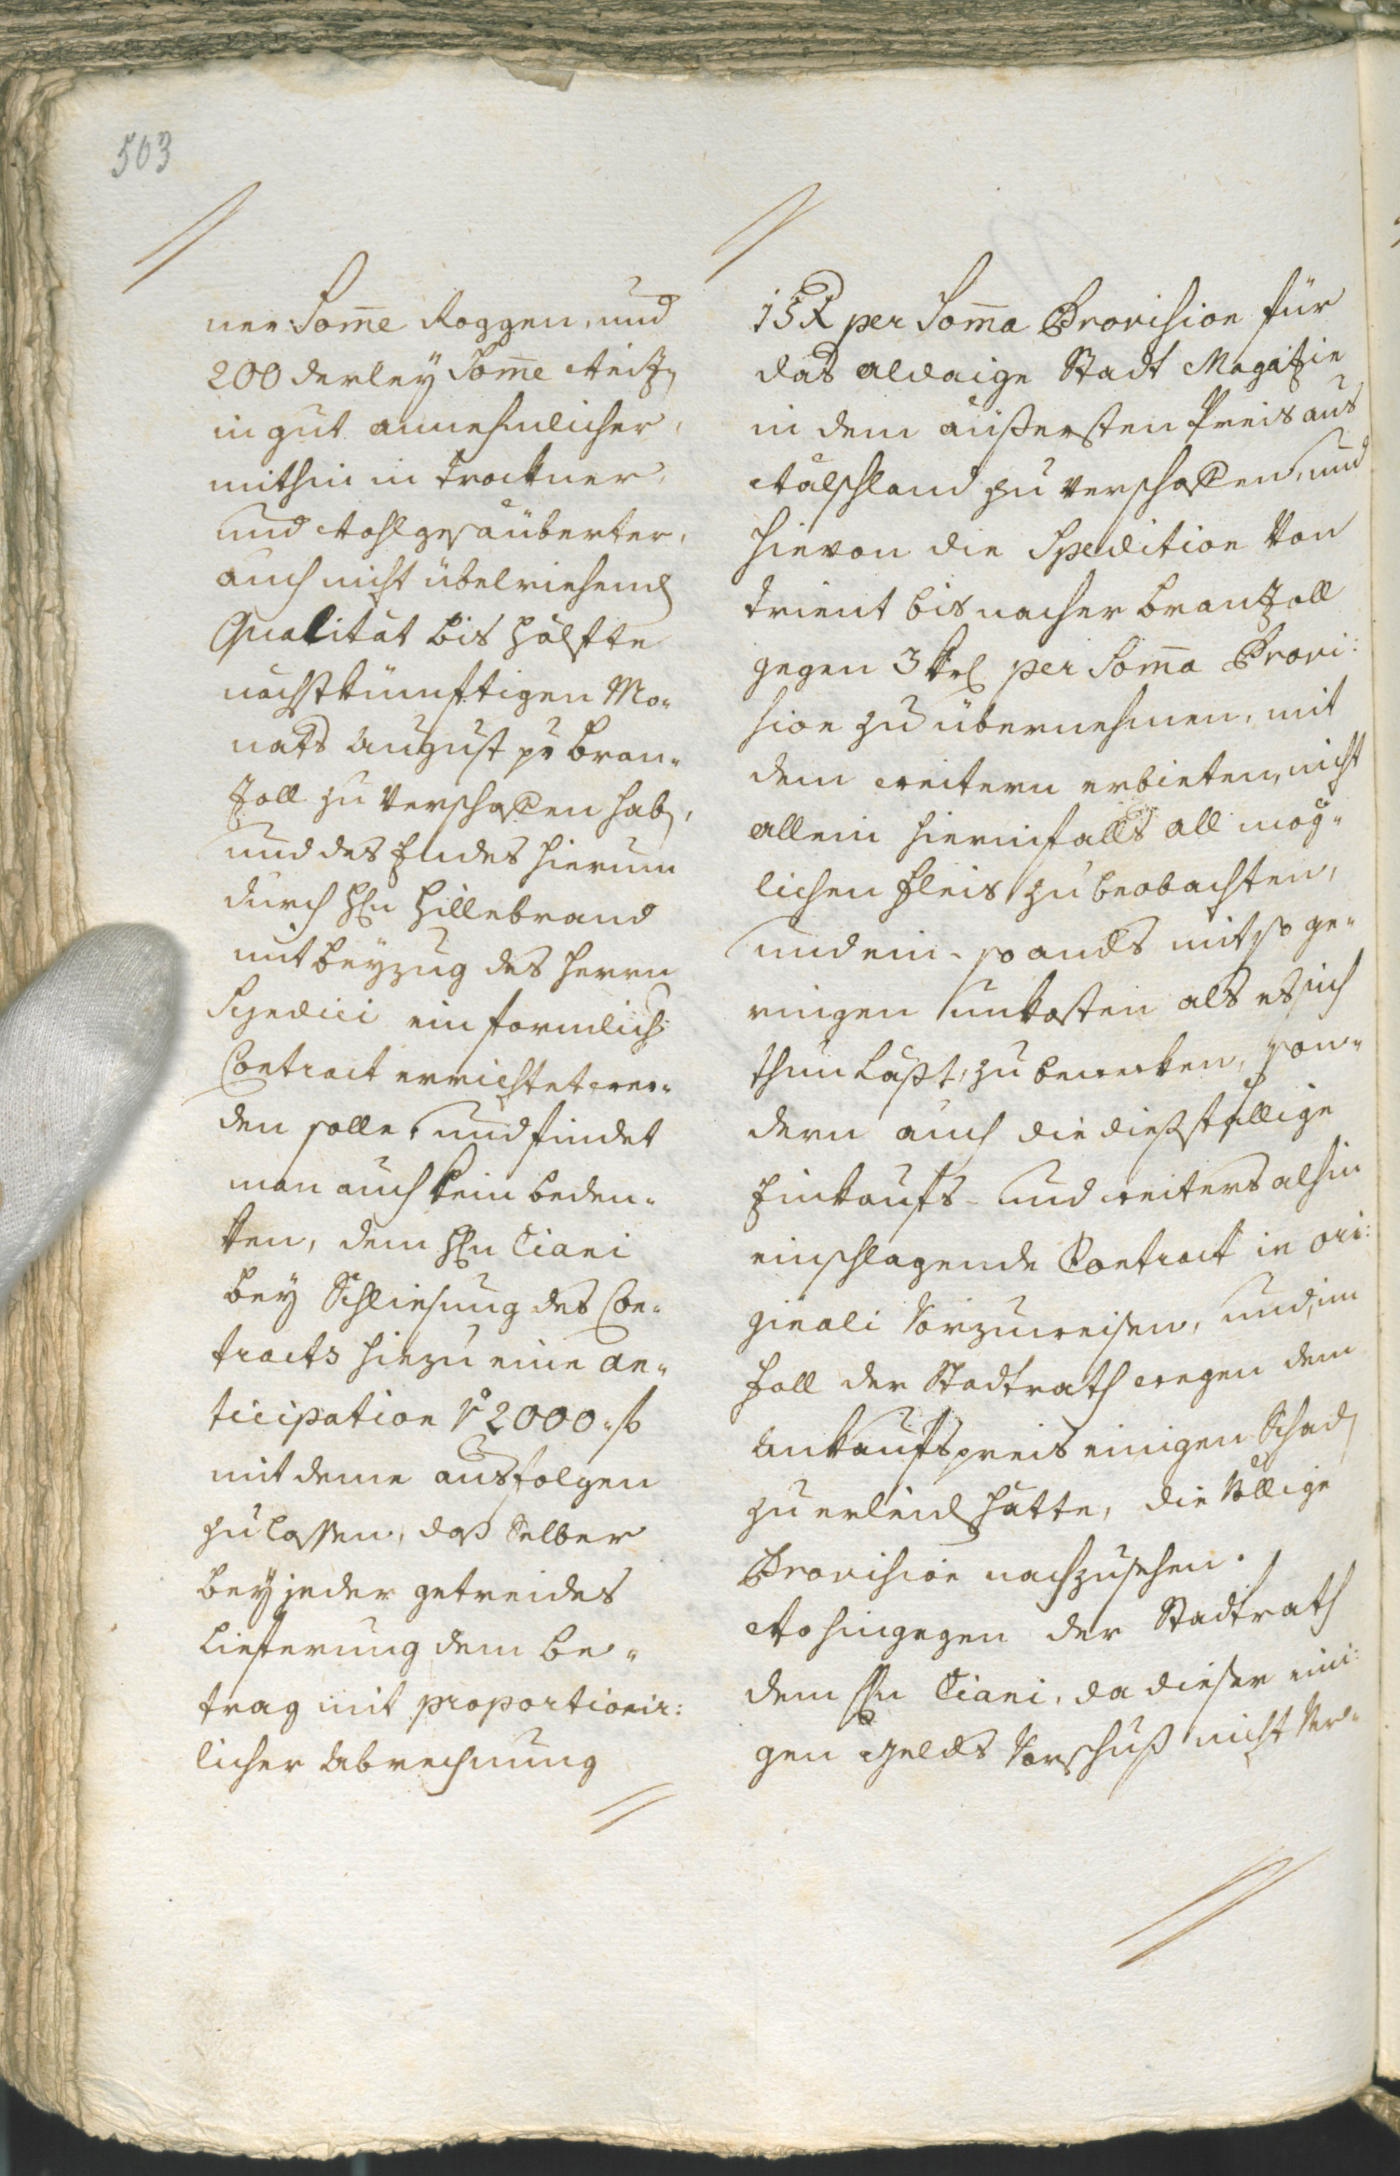 503
ner Som̅e Roggen, und
200 derley Som̅e Weiz
in gut annehmlicher,
mithin in trockner,
und wohlgesäuberter,
auch nicht übelriehend
Qualität bis Hälfte
nächstkünftigen Mo-
nats August pr Bran-
zoll zu verschaffen hab,
und des Endes hierum
durch Hn Hillebrand
mit Beyzug des Herrn
Syndici ein formlich
Contract errichtet wer-
den solle, und findet
man auch kein beden-
ken, dem Hn Ciani
bey Schliesung des Con-
tracts hiezu eine An-
ticipation 2000 f
mit deme ausfolgen
zu lassen, daß Selber
bey jeder getreides
Lieferung dem Be-
trag mit proportionir:
licher Abrechnung
15 X per Som̅a Provision für
das aldaige Stadt Magazin
in dem äußersten Preis aus
Wälschland zu verschaffen, und
hievon die Spedition von
Trient bis nacher Branzoll
gegen 3 Krl per Som̅a Provi:
sion zu übernehmen, mit
dem weitern erbieten, nicht
allein hierinfalls all mög-
lichen Fleis zu beobachten,
und ein- so anders mit so ge-
ringen unkosten als es sich
thun läßt, zu bewerken, son-
dern auch die dießfällige
Einkaufs- und weiters alhin
einschlagende Contract in ori:
ginali vorzuweisen, und, im
Fall der Stadtrath wegen dem
Ankaufspreis einigen Schad
zu erleid hätte, die völlige
Provision nachzusehen.
Wohingegen der Stadtrath
dem Hn Ciani, da dieser eini:
gen Gelds Vorschuß nicht ver-